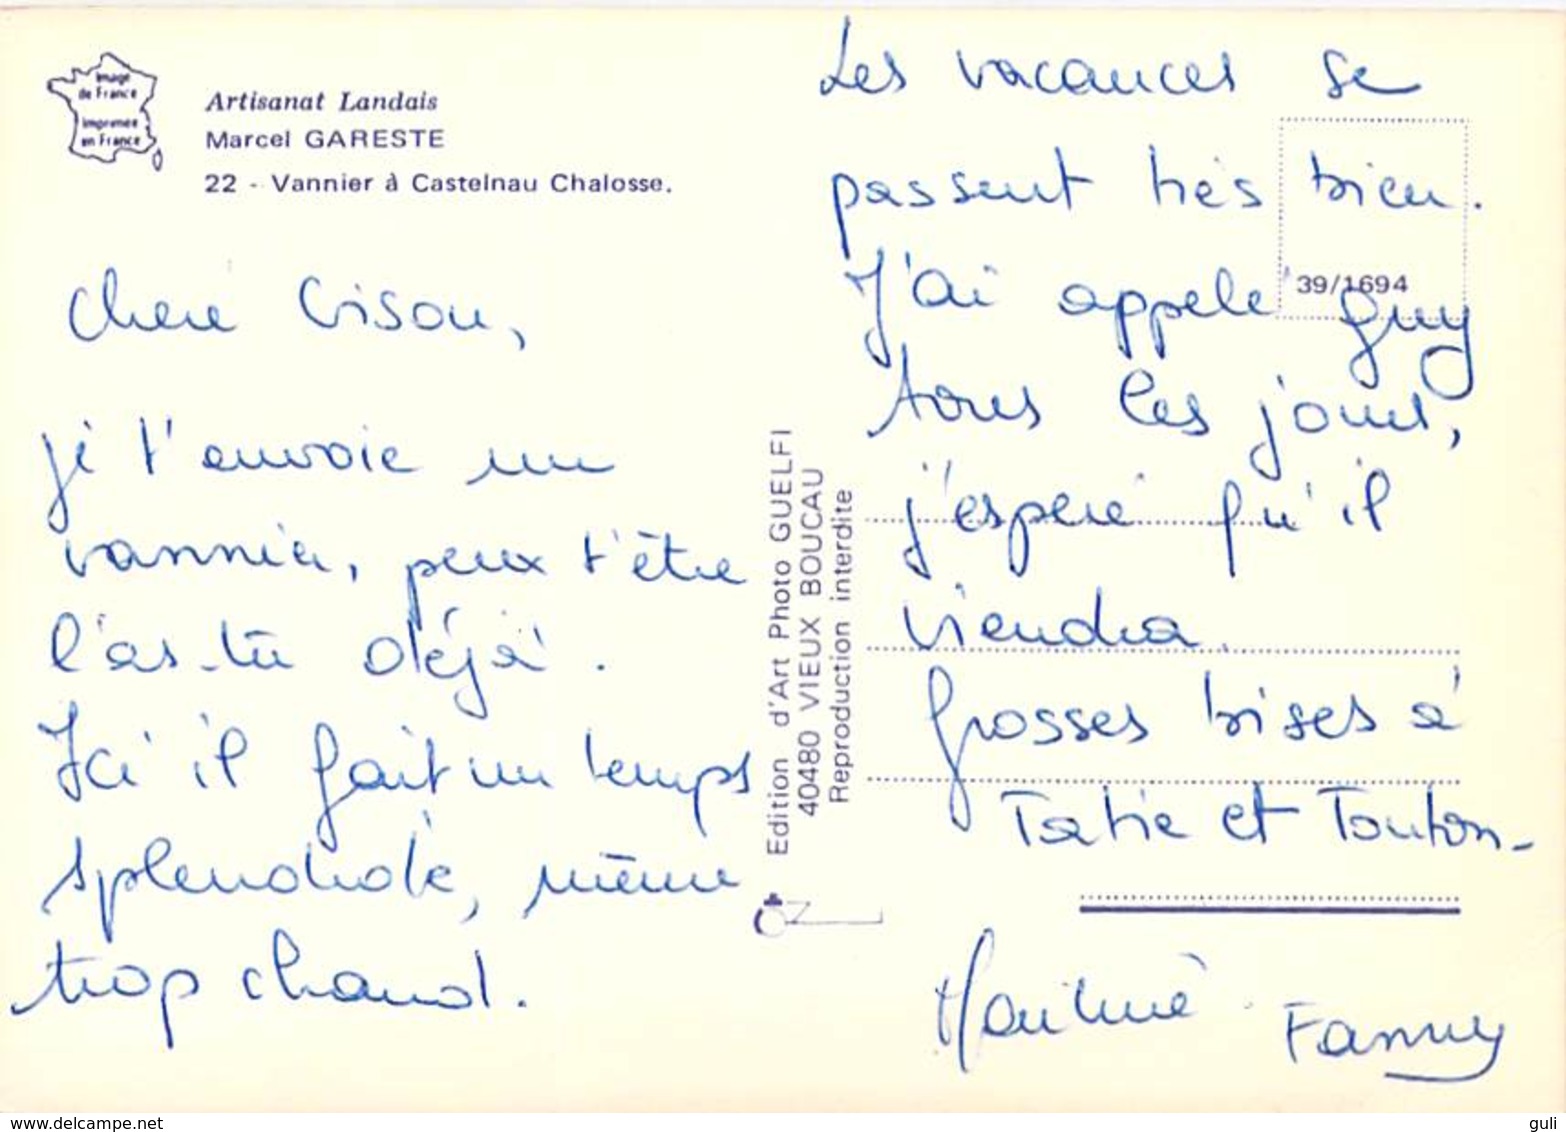 Image
de France
Imprimée
en France
Artisanat Landais
Marcel GARESTE
22 - Vannier à Castelnau Chalosse.
Chère Lison,
je t'envoie un
vannier, peux t'être
l'as-tu déjà.
Ici il fait un temps
splendide, même
trop chaud.
Edition d'Art Photo GUELFI
40480 VIEUX BOUCAU
Reproduction interdite
Les vacances se
passent très bien.
39/1694
J'ai appelé Guy
tous les jours,
j'espère qu'il
viendra.
Grosses bises à
Tatie et Tonton-
Fanny
delcampe.net
guli